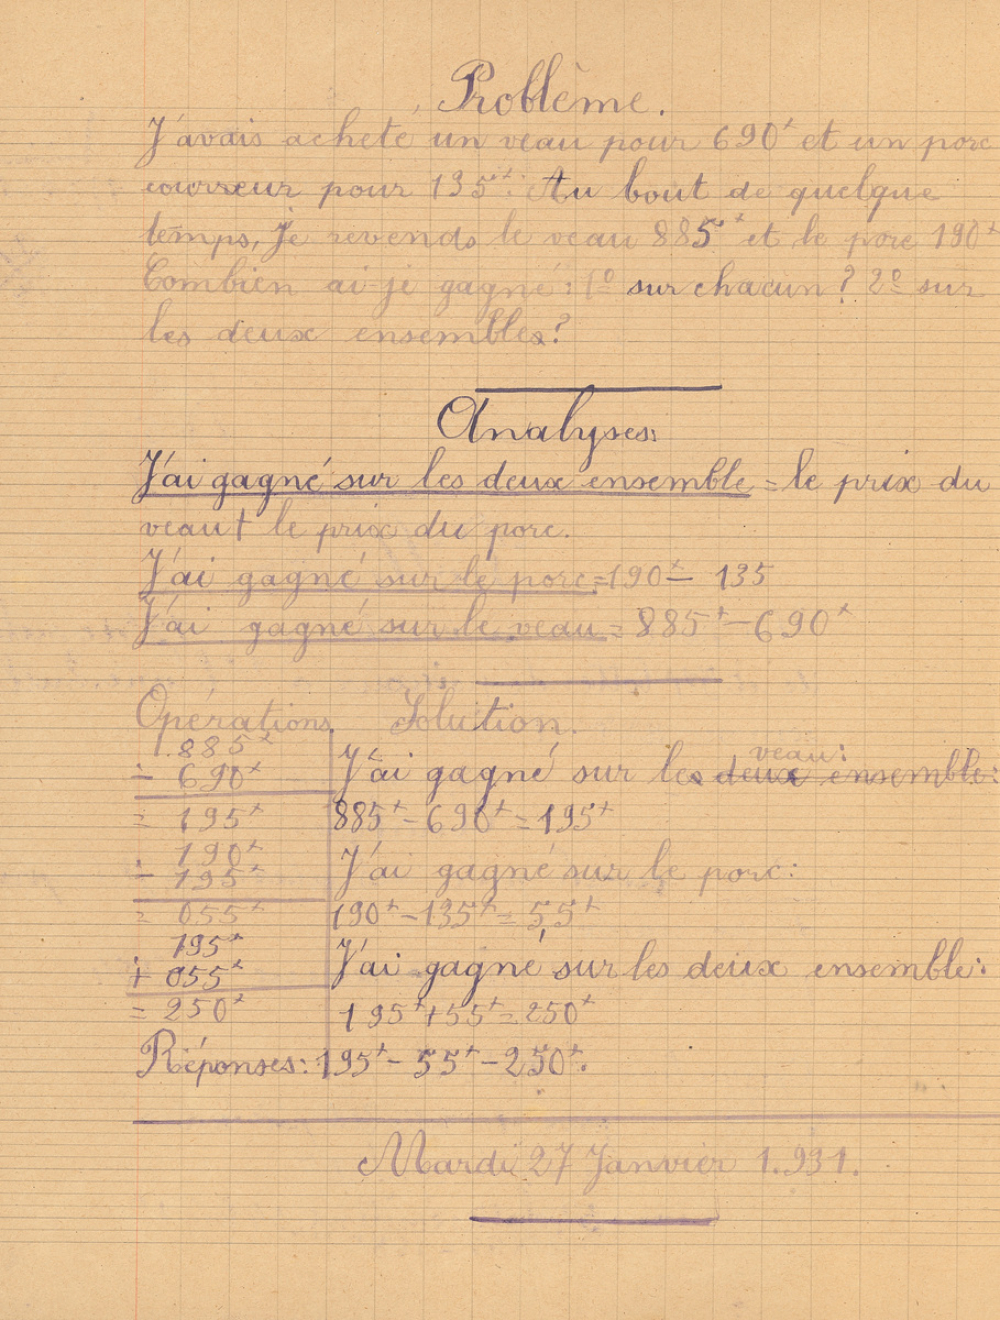 Problème.
J'avais acheté un veau pour 690ᶠ et un porc
coureur pour 135ᶠ. Au bout de quelque
temps, je revends le veau 885ᶠ et le porc 190ᶠ
Combien ai-je gagné : 1º sur chacun ? 2º sur
les deux ensembles ?
Analyses.
J'ai gagné sur les deux ensemble = le prix du
veau + le prix du porc.
J'ai gagné sur le porc = 190ᶠ − 135
J'ai gagné sur le veau = 885ᶠ − 690ᶠ
Opérations Solution.
885ᶠ
veau :
− 690ᶠ J'ai gagné sur les deux ensemble :
= 195ᶠ 885ᶠ − 690ᶠ = 195ᶠ
190ᶠ
− 135ᶠ J'ai gagné sur le porc :
= 055ᶠ 190ᶠ − 135ᶠ = 55ᶠ
195ᶠ
+ 055ᶠ J'ai gagné sur les deux ensemble :
= 250ᶠ 195ᶠ + 55ᶠ = 250ᶠ
Réponses : 195ᶠ − 55ᶠ − 250ᶠ.
Mardi 27 Janvier 1.931.